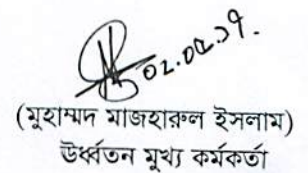 ০২.০৫.১৭.
(মুহাম্মদ মাজহারুল ইসলাম)
উর্ধ্বতন মুখ্য কর্মকর্তা